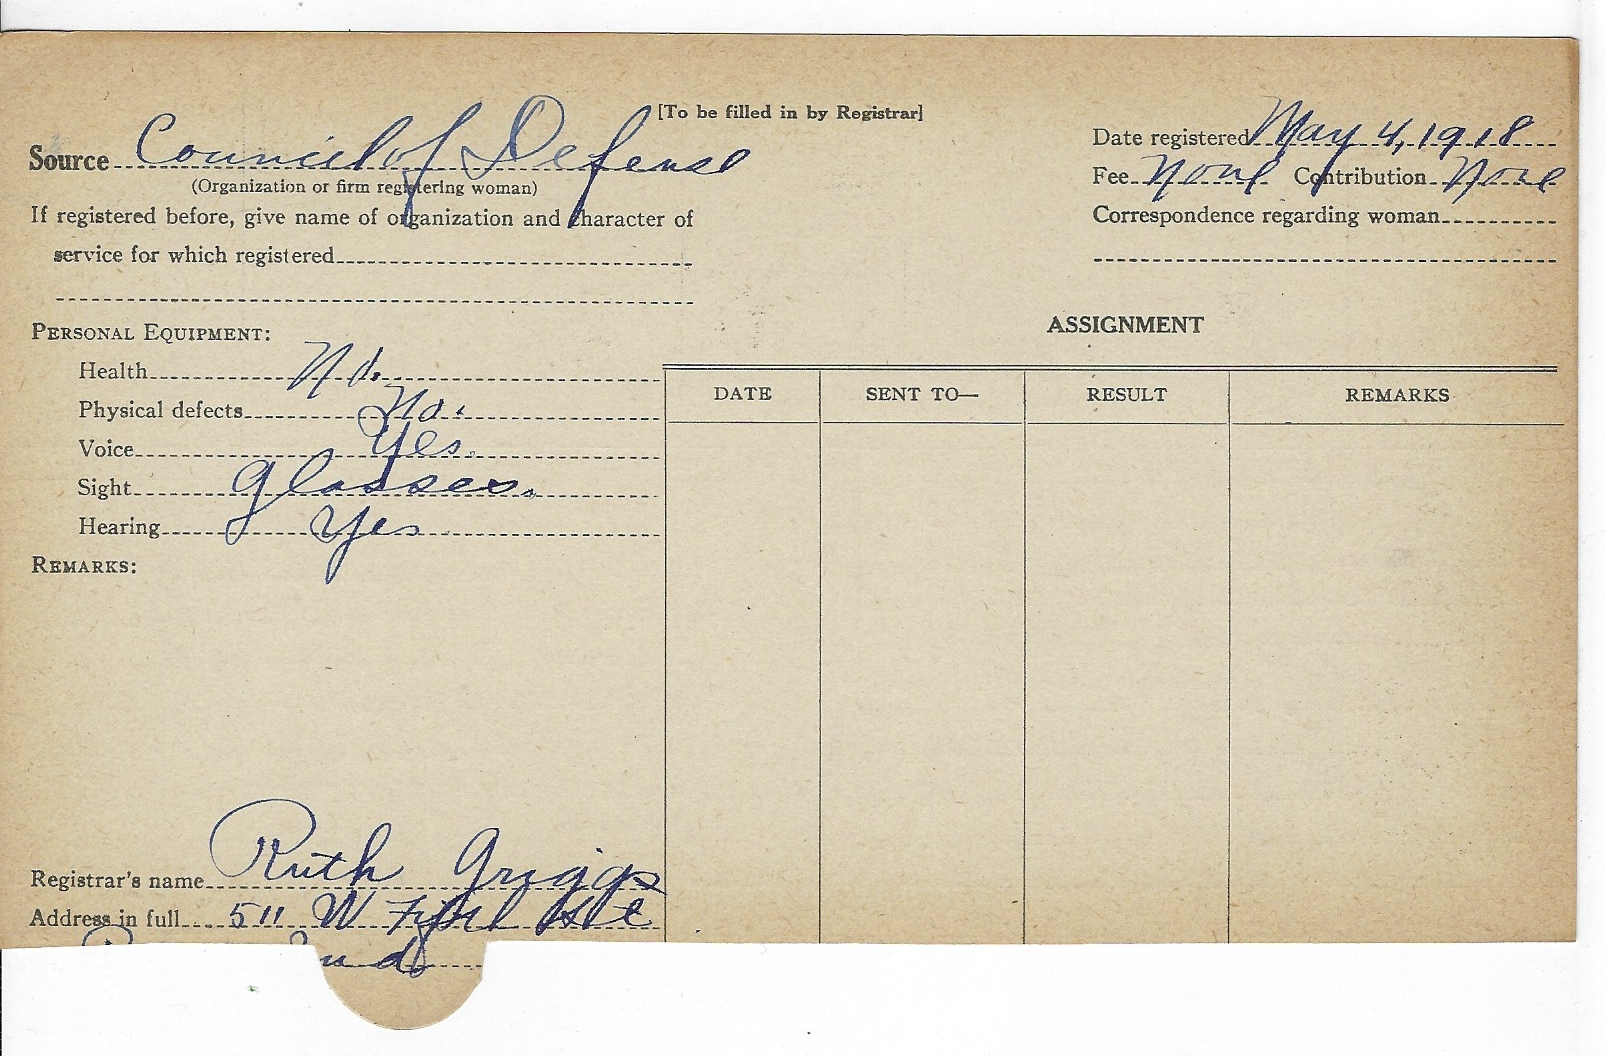 [To be filled in by Registrar]
Source Council of Defense
(Organization or firm registering woman)
If registered before, give name of organization and character of
service for which registered
Date registered May 4, 1918
Fee None Contribution None
Correspondence regarding woman
PERSONAL EQUIPMENT:
Health No.
Physical defects No.
Voice Yes.
Sight Glasses.
Hearing Yes
REMARKS:
Registrar's name Ruth Griggs
Address in full 511 W First St
Ind
ASSIGNMENT
DATE SENT TO— RESULT REMARKS